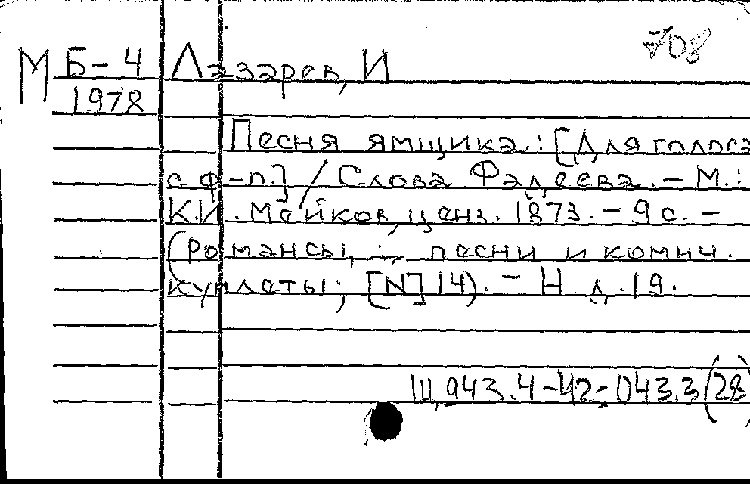 708
М Б-4 Лазарев, И
1978
Песня ямщика: [Для голоса
с ф-п.] / Слова Фадеева. - М.:
К.И. Мейков, ценз. 1873. - 9 с. -
(Романсы, ... песни и комич.
куплеты; [N] 14). - Н. д. 19.
Щ943.4-42-043.3(28)